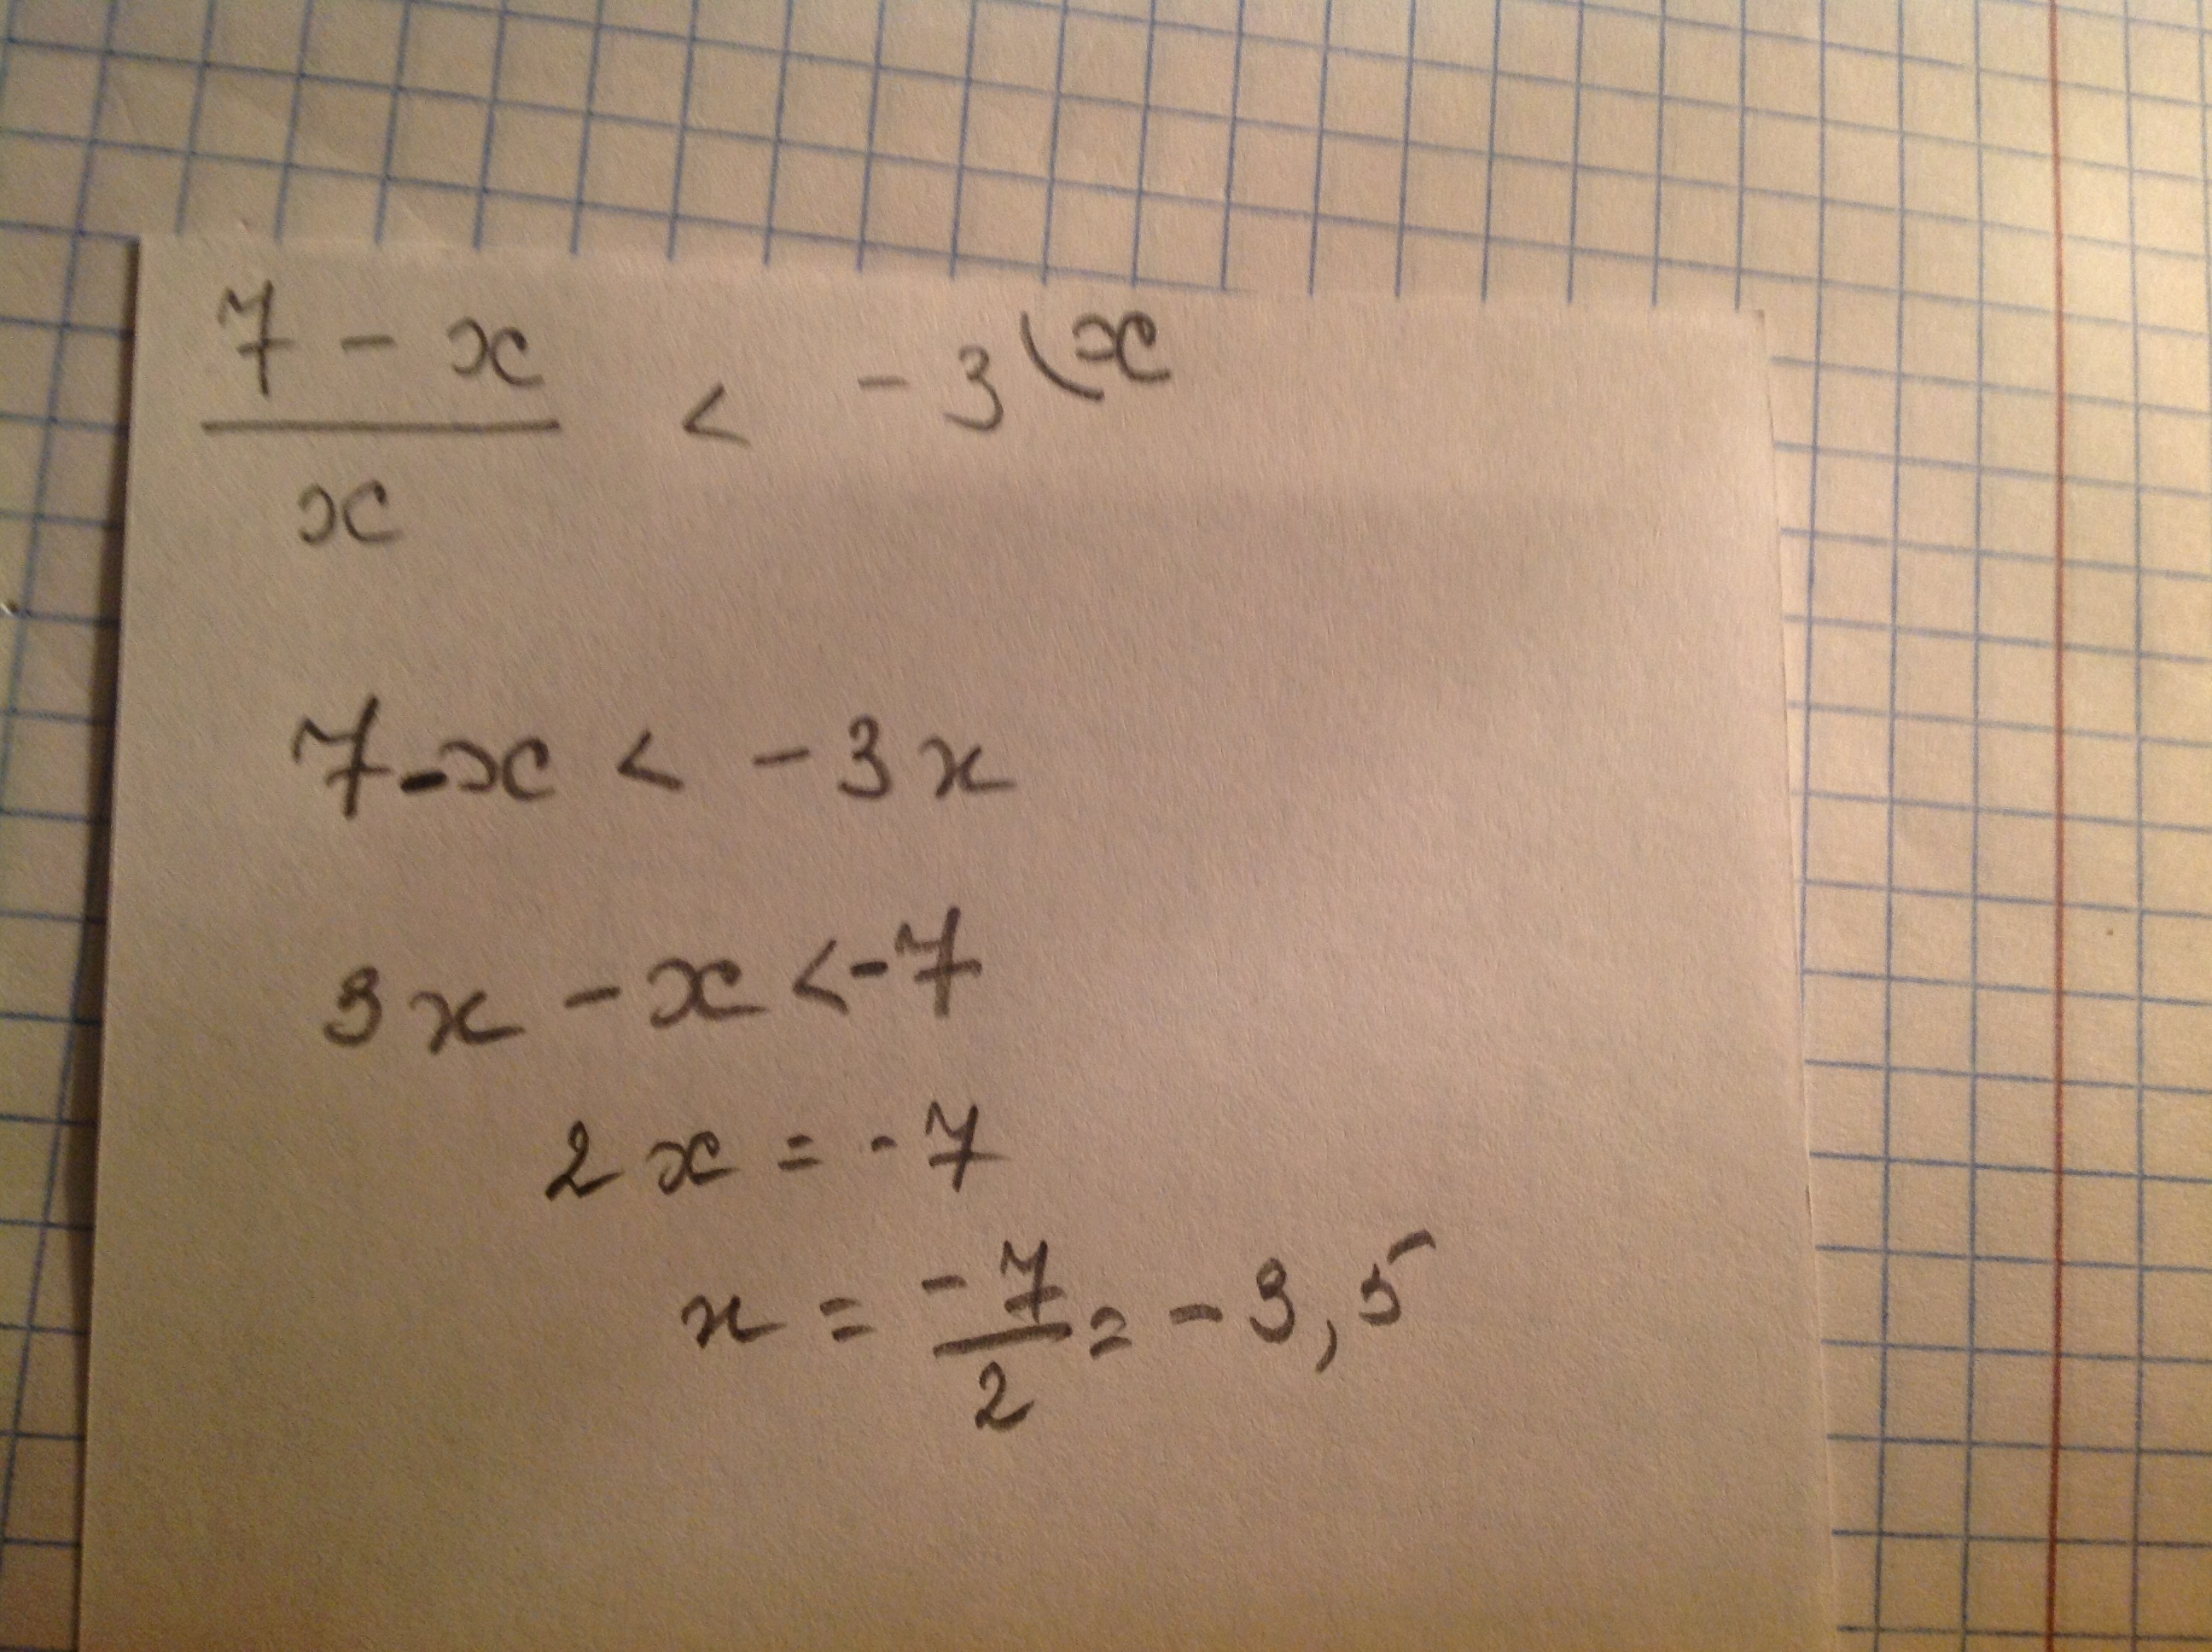 7 - x / x < -3 (x
7 - x < - 3x
3x - x < -7
2x = -7
x = -7/2 = -3,5